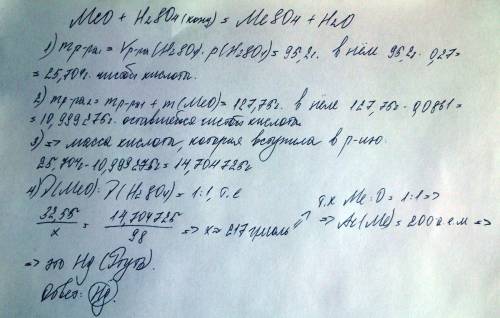 MeO + H2SO4 (конц) = MeSO4 + H2O
1) mр-ра1 = Vр-ра (H2SO4) · ρ(H2SO4) = 95,2г. в нём 95,2г · 0,27 =
= 25,704г. чистой кислота.
2) mр-ра2 = mр-ра1 + m(MeO) = 127,75г. в нём 127,75г · 0,0861 =
= 10,999275г. оставшейся чистой кислота
3) => масса кислота, которая вступила в р-ию
25,704 - 10,999275г = 14,704725г
4) ν(MeO) : ν(H2SO4) = 1:1, т.е
32,55/x = 14,704725/98 => x = 217 г/моль => т.к Me:O = 1:1 =>
=> Ar(Me) = 200 а.е.м =>
=> это Hg (Ртуть).
Ответ: Hg.